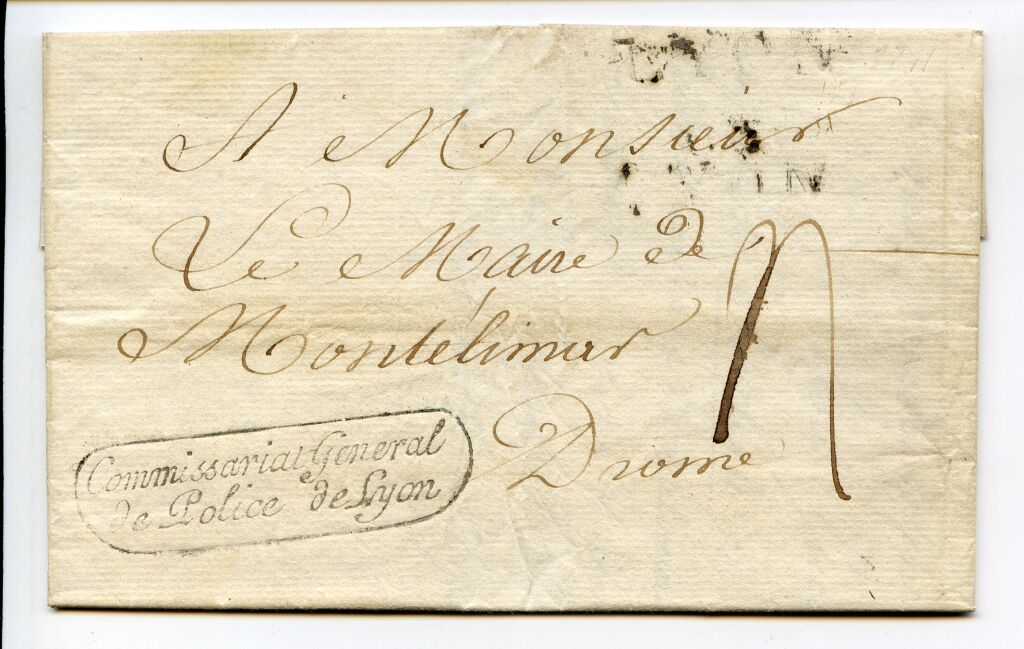 LYON
A Monsieur
Le Maire de
Montélimar
Drome
Commissariat Géneral
de Police de Lyon